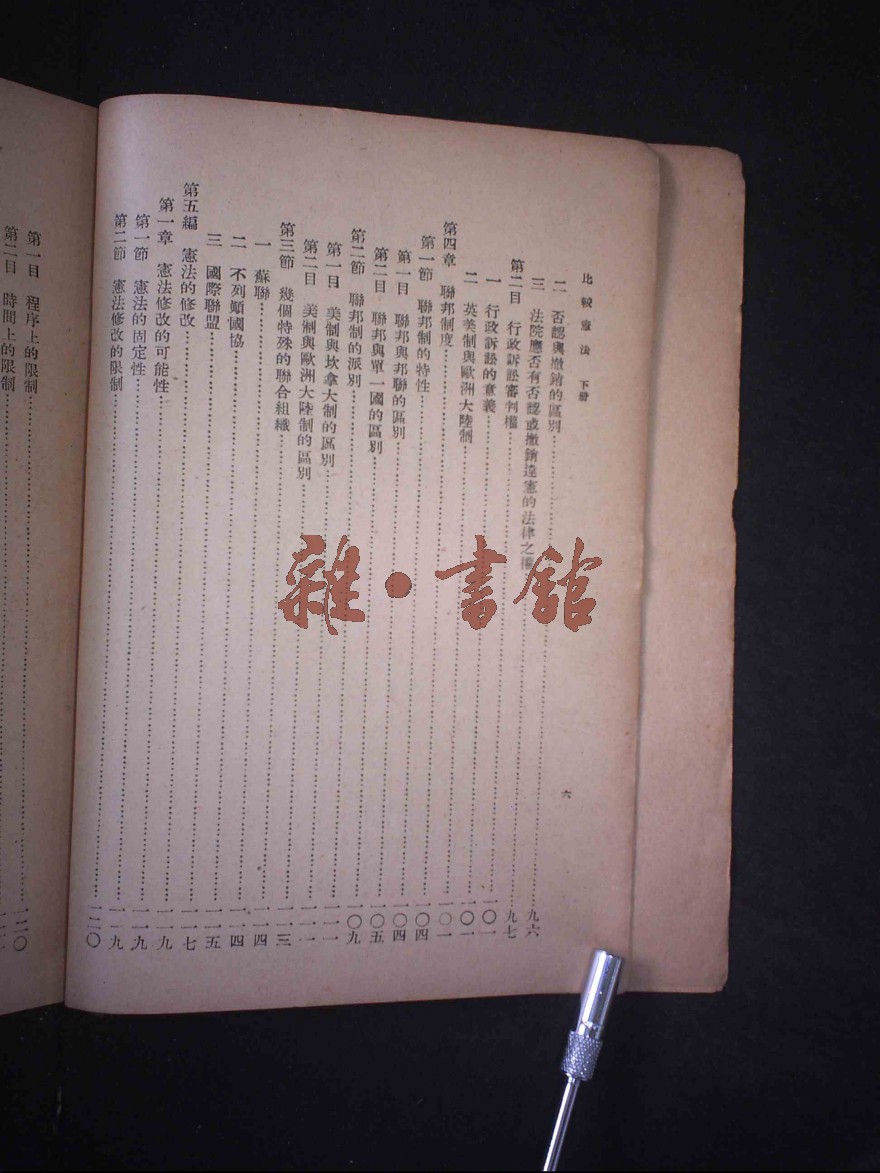 比較憲法 下冊
六
二 否認與撤銷的區別……九六
三 法院應否有否認或撤銷違憲的法律之權……九七
第二目 行政訴訟審判權……一〇一
一 行政訴訟的意義……一〇一
二 英美制與歐洲大陸制……一〇一
第四章 聯邦制度……一〇四
第一節 聯邦制的特性……一〇四
第一目 聯邦與邦聯的區別……一〇五
第二目 聯邦與單一國的區別……一〇九
第二節 聯邦制的派別……一一一
第一目 美制與坎拿大制的區別……一一一
第二目 美制與歐洲大陸制的區別……一一三
第三節 幾個特殊的聯合組織……一一四
一 蘇聯……一一四
二 不列顛國協……一一五
三 國際聯盟……一一七
第五編 憲法的修改……一一九
第一章 憲法修改的可能性……一一九
第一節 憲法的固定性……一一九
第二節 憲法修改的限制……一二〇
第一目 程序上的限制……一二〇
第二目 時間上的限制……
雜·書館